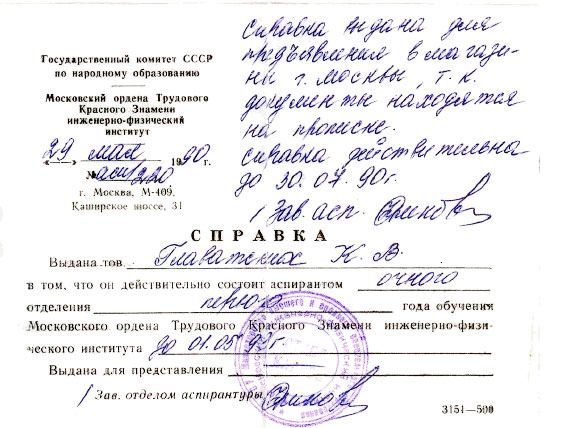 Государственный комитет СССР
по народному образованию
Московский ордена Трудового
Красного Знамени
инженерно-физический
институт
«29» мая 1990 г.
№ асп/220
г. Москва, М-409.
Каширское шоссе, 31
Справка выдана для
предъявления в магази-
ны г. Москвы, т. к.
документы находятся
на прописке.
Справка действительна
до 30.07.90г.
/ Зав. асп.
СПРАВКА
Выдана тов. Главатских К. В.
в том, что он действительно состоит аспирантом очного
отделения первого года обучения
Московского ордена Трудового Красного Знамени инженерно-физи-
ческого института до 01.05.93г.
Выдана для представления
/ Зав. отделом аспирантуры
3151—500